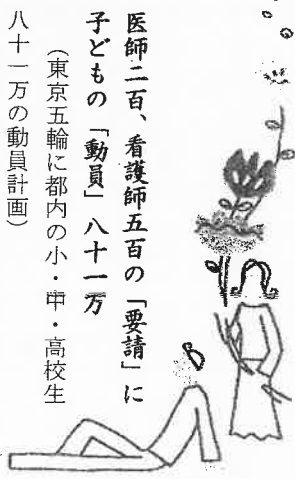 医師二百、看護師五百の「要請」に
子どもの「動員」八十一万
（東京五輪に都内の小・中・高校生
八十一万の動員計画）